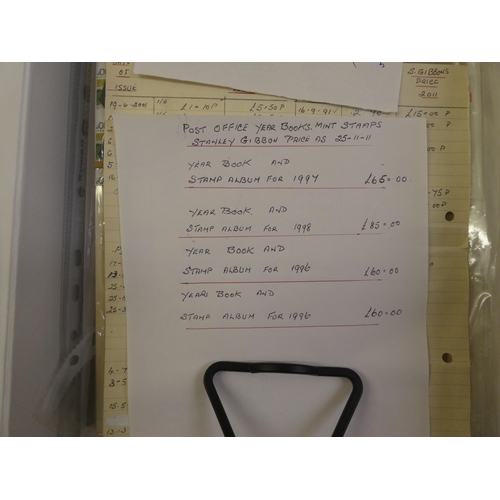 OF
ISSUE
S. GIBBONS
PRICE
2011
19-6-2001 £1-10P £5-50P 16-9-91 £15-00P
POST OFFICE YEAR BOOKS. MINT STAMPS
STANLEY GIBBON PRICE AS 25-11-11
YEAR BOOK AND
STAMP ALBUM FOR 1997 £65-00
YEAR BOOK. AND
STAMP ALBUM FOR 1998 £85-00
YEAR BOOK AND
STAMP ALBUM FOR 1996 £60-00
YEAR BOOK AND
STAMP ALBUM FOR 1996 £60-00